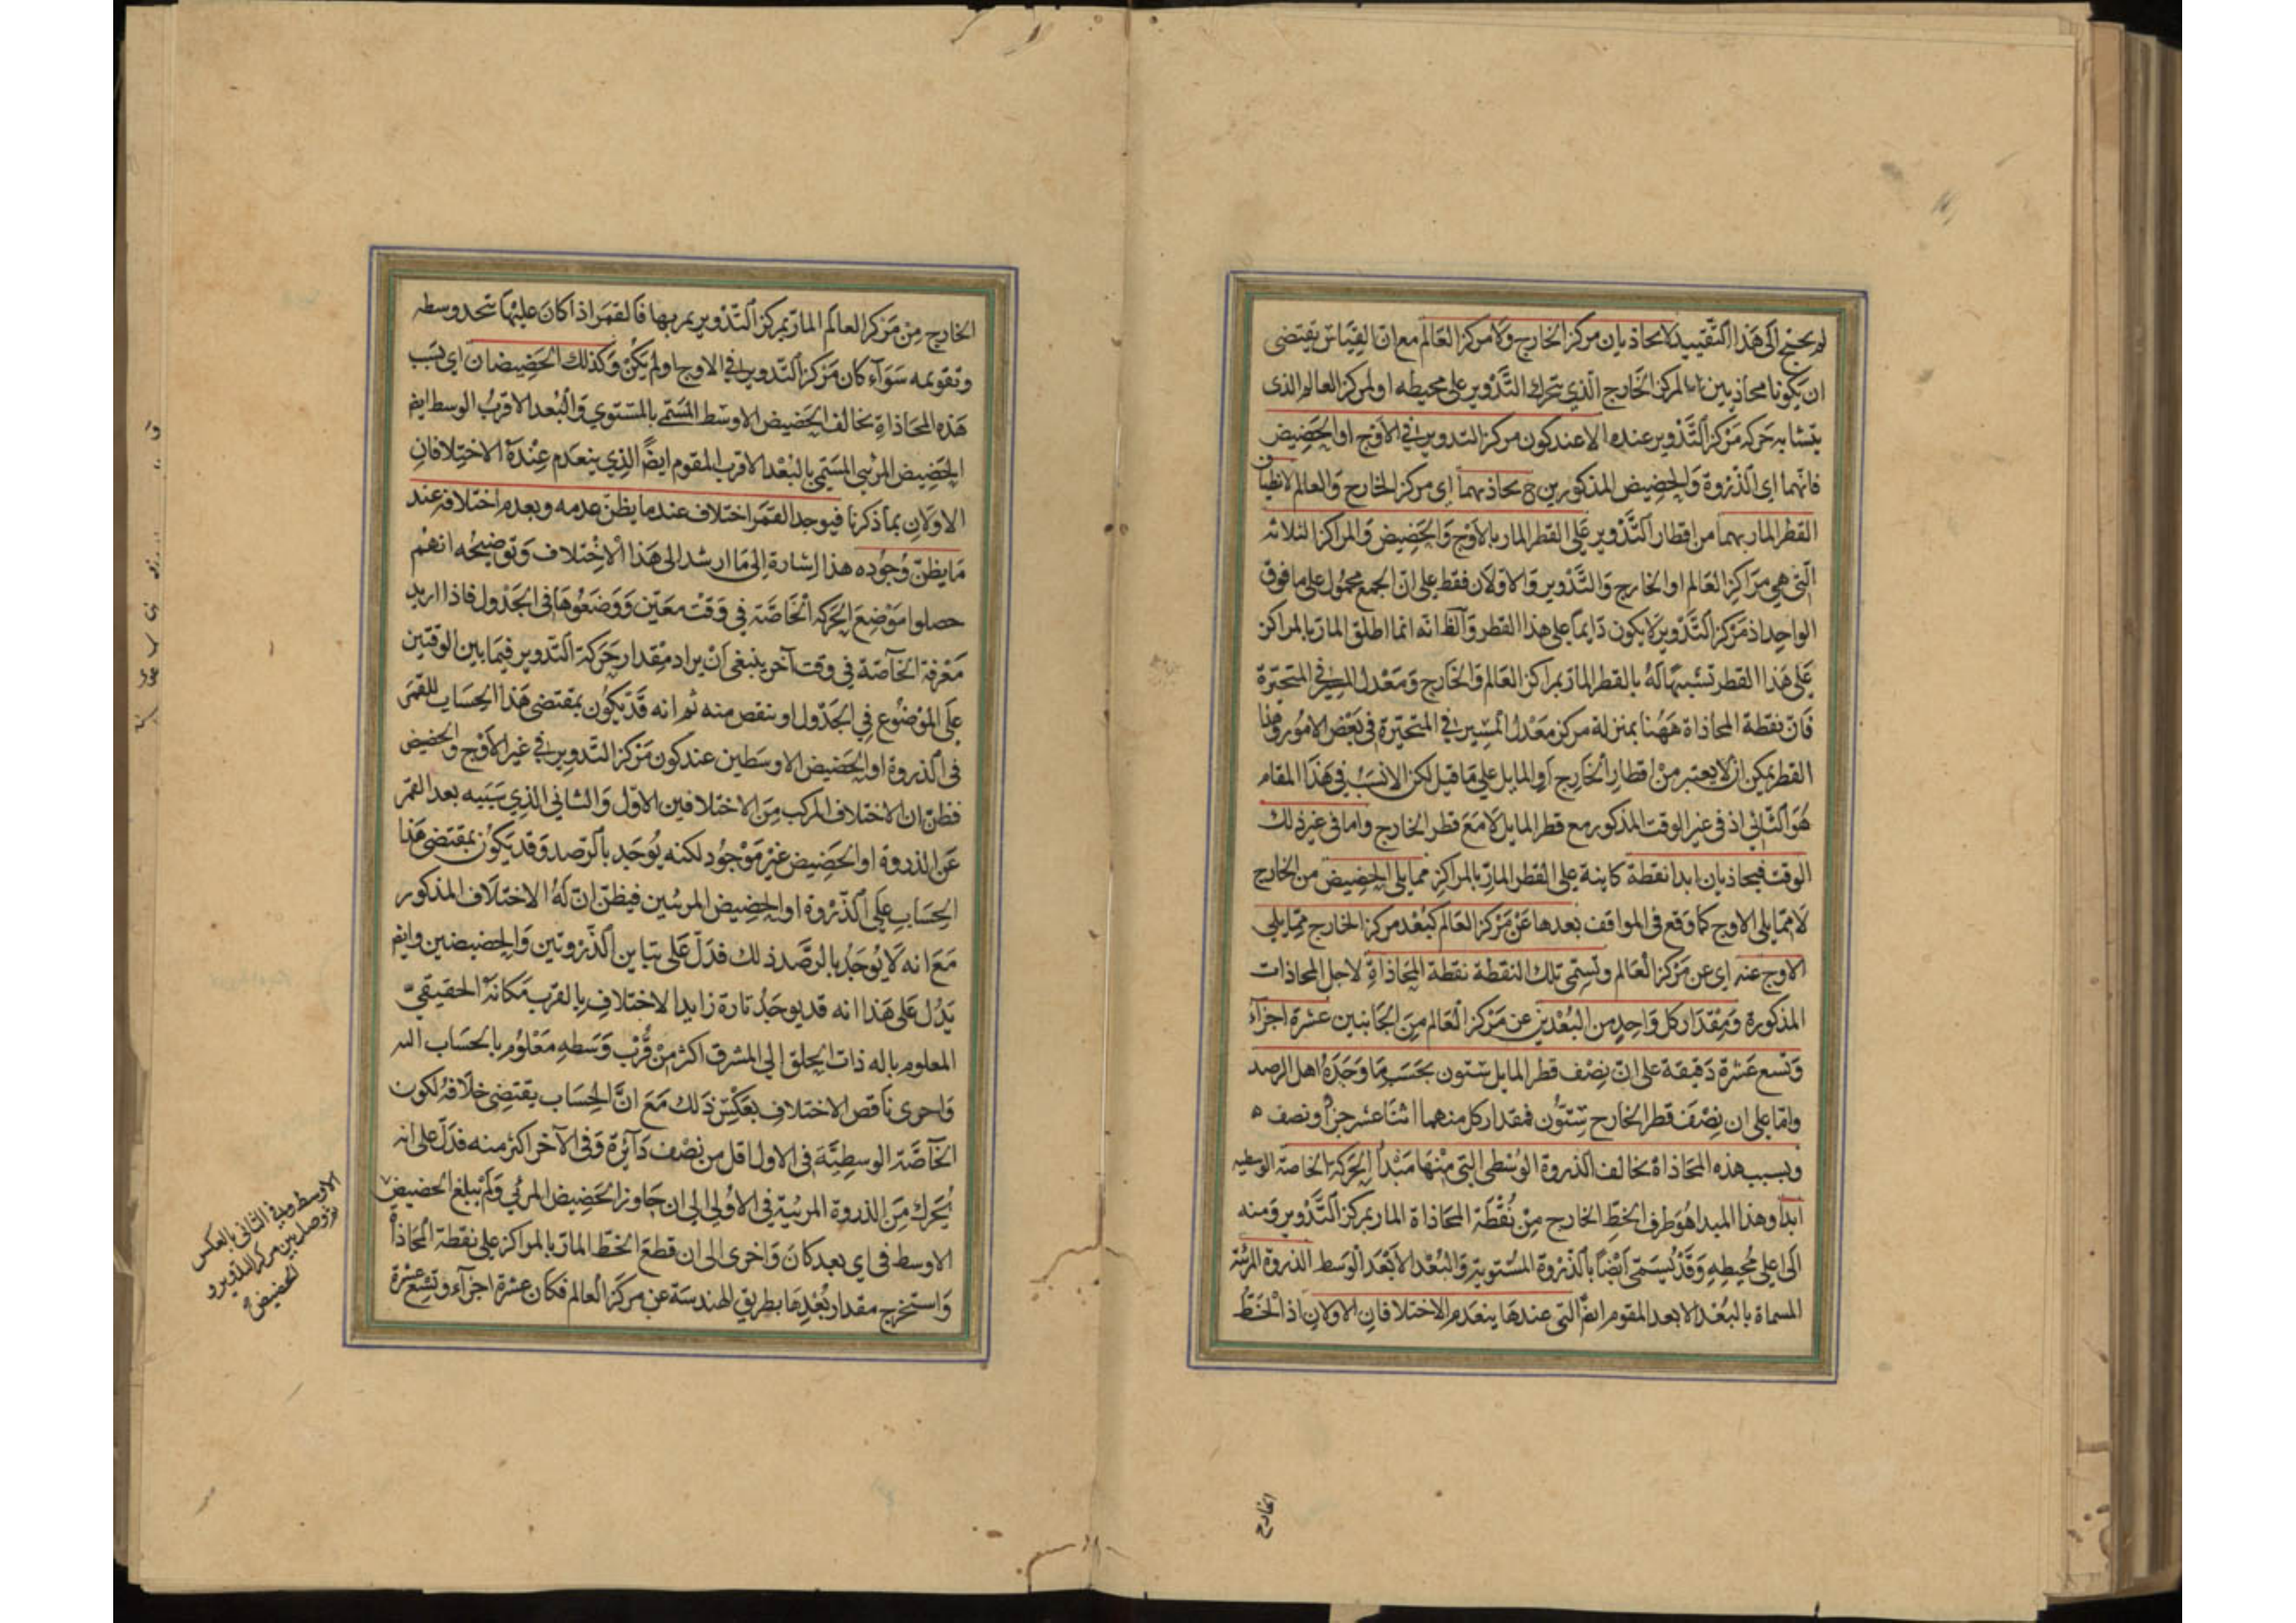 لم يحتج الى هذا التقييد لا يحاذيان مركز الخارج ولا مركز العالم مع ان القياس يقتضى
ان يكونا محاذيين اما لمركز الخارج الذي يتحرك التدوير على محيطه او لمركز العالم الذى
يتشابه حركة مركز التدوير عنده الا عند كون مركز التدوير في الاوج او الحضيض
فانهما اى الذروة والحضيض المذكورين ح يحاذيهما اى مركز الخارج والعالم لانطباق
القطر المار بهما من اقطار التدوير على القطر المار بالاوج والحضيض والمراكز الثلاثه
التي هي مراكز العالم او الخارج والتدوير والاولان فقط على ان الجمع محمول على ما فوق
الواحد اذ مركز التدوير لا يكون دايما على هذا القطر والظ انه انما اطلق المار بالمراكز
على هذا القطر تشبيها له بالقطر المار بمراكز العالم والخارج ومعدل المسير في المتحيرة
فان نقطة المحاذاة ههنا بمنزلة مركز معدل المسير في المتحيرة فى بعض الامور وهذا
القطر يمكن ان لا يعتبر من اقطار الخارج او المايل على ما قيل لكن الانسب في هذا المقام
هو الثاني اذ فى غير الوقت المذكور مع قطر المايل لا مع قطر الخارج واما فى غير ذلك
الوقت فيحاذيان ابدا نقطة كاينة على القطر المار بالمراكز مما يلى الحضيض من الخارج
لا مما يلى الاوج كما وقع فى المواقف بعدها عن مركز العالم كبعد مركز الخارج مما يلى
الاوج عنه اى عن مركز العالم وتسمى تلك النقطة نقطة المحاذاة لاجل المحاذات
المذكورة ومقدار كل واحد من البعدين عن مركز العالم من الجانبين عشرة اجزآء
وتسع عشرة دقيقة على ان نصف قطر المايل ستون بحسب ما وجده اهل الرصد
واما على ان نصف قطر الخارج ستون فمقدار كل منهما اثنا عشر جزأ ونصف ه
وبسبب هذه المحاذاة تخالف الذروة الوسطى التى منها مبدأ الحركة الخاصة الوسطيه
ابدا وهذا المبدا هو طرف الخط الخارج من نقطة المحاذاة المار بمركز التدوير ومنه
الى اعلى محيطه وقد يسمى ايضا بالذروة المستوية والبعد الابعد الوسط الذروة المرئية
المسماة بالبعد الابعد المقوم ايضا التى عندها ينعدم الاختلافان الاولان اذ الخط
الخارج
الخارج من مركز العالم المار بمركز التدوير يمر بها فالقمر اذا كان عليها يتحد وسطه
وتقويمه سوآء كان مركز التدوير في الاوج او لم يكن وكذلك الحضيضان اى بسبب
هذه المحاذاة يخالف الحضيض الاوسط المسمى بالمستوي والبعد الاقرب الوسط ايضا
الحضيض المرئى المسمى بالبعد الاقرب المقوم ايضاً الذي ينعدم عنده الاختلافان
الاولان بما ذكرنا فيوجد القمر اختلاف عند ما يظن عدمه ويعدم اختلافه عند
ما يظن وجوده هذا اشارة الى ما ارشد الى هذا الاختلاف وتوضيحه انهم
حصلوا موضع الحركة الخاصة في وقت معين ووضعوها فى الجدول فاذا اريد
معرفة الخاصة في وقت آخر ينبغى ان يراد مقدار حركة التدوير فيما بين الوقتين
على الموضوع في الجدول او ينقص منه ثم انه قد يكون بمقتضى هذا الحساب للقمر
فى الذروة او الحضيض الاوسطين عند كون مركز التدوير في غير الاوج والحضيض
فظن ان الاختلاف المركب من الاختلافين الاول والثانى الذي سببه بعد القمر
عن الذروة او الحضيض غير موجود لكنه يوجد بالرصد وقد يكون بمقتضى هذا
الحساب على الذروة او الحضيض المرئيين فيظن ان له الاختلاف المذكور
مع انه لا يوجد بالرصد ذلك فدل على تباين الذروتين والحضيضين وايضا
يدل على هذا انه قد يوجد تارة زايد الاختلاف بالقرب مكانه الحقيقي
المعلوم باله ذات الحلق الى المشرق اكثر من قرب وسطه معلوم بالحساب اليه
واخرى ناقص الاختلاف بعكس ذلك مع ان الحساب يقتضى خلافه لكون
الخاصة الوسطية فى الاول اقل من نصف دآئرة وفى الآخر اكثر منه فدل على انه
يحرك من الذروة المرئية في الاولى الى ان جاوز الحضيض المرئي ولم يبلغ الحضيض
الاوسط فى اى بعد كان واخرى الى ان قطع الخط المار بالمراكز على نقطة المحاذاة
واستخرج مقدار بعدها بطريق الهندسة عن مركز العالم فكان عشرة اجزآء وتسع عشرة
الاوسط وفي الثانى بالعكس
ثم وصل بين مركز التدوير و
الحضيض